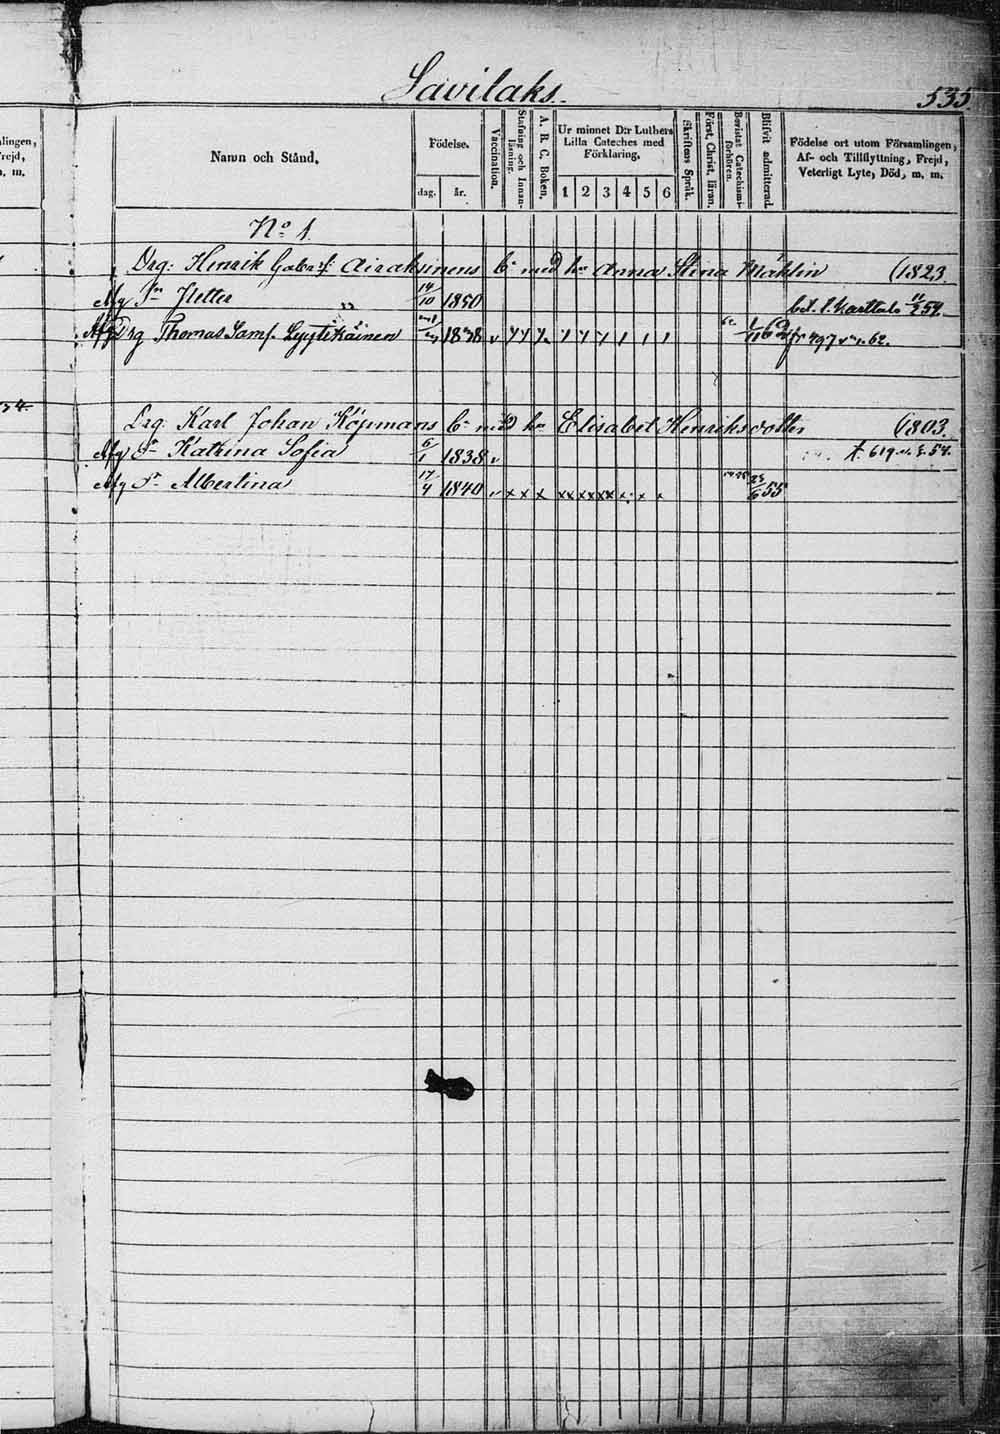 Savilaks.
535.
Namn och Stånd.
Födelse.
dag.
år.
Vaccination.
Stafning och Innanläsning.
A. B. C. Boken.
Ur minnet D:r Luthers Lilla Cateches med Förklaring.
1 2 3 4 5 6
Skriftens Språk.
Först. Christ. läran.
Bevistat Catechismiförhören.
Blifvit admitterad.
Födelse ort utom Församlingen, Af- och Tillflyttning, Frejd, Veterligt Lyte, Död, m. m.
lingen,
rejd,
m.
No 1.
Drg: Henrik Gabr:s: Airaksinens b: med hu Anna Stina Mählin (1823.
Afg Netter 14/10 1850 Karttula 11/2 54.
Afg Drg Thomas Samf. Lyytikäinen 1838 62.
34.
Drg. Karl Johan Köpmans b: med hu Elisabet Henriksdotter (1803.
Afg Katrina Sofia 6/1 1838 v 619 54.
Afg Albertina 17/4 1840 v x x x x x x x x x 23/6 55